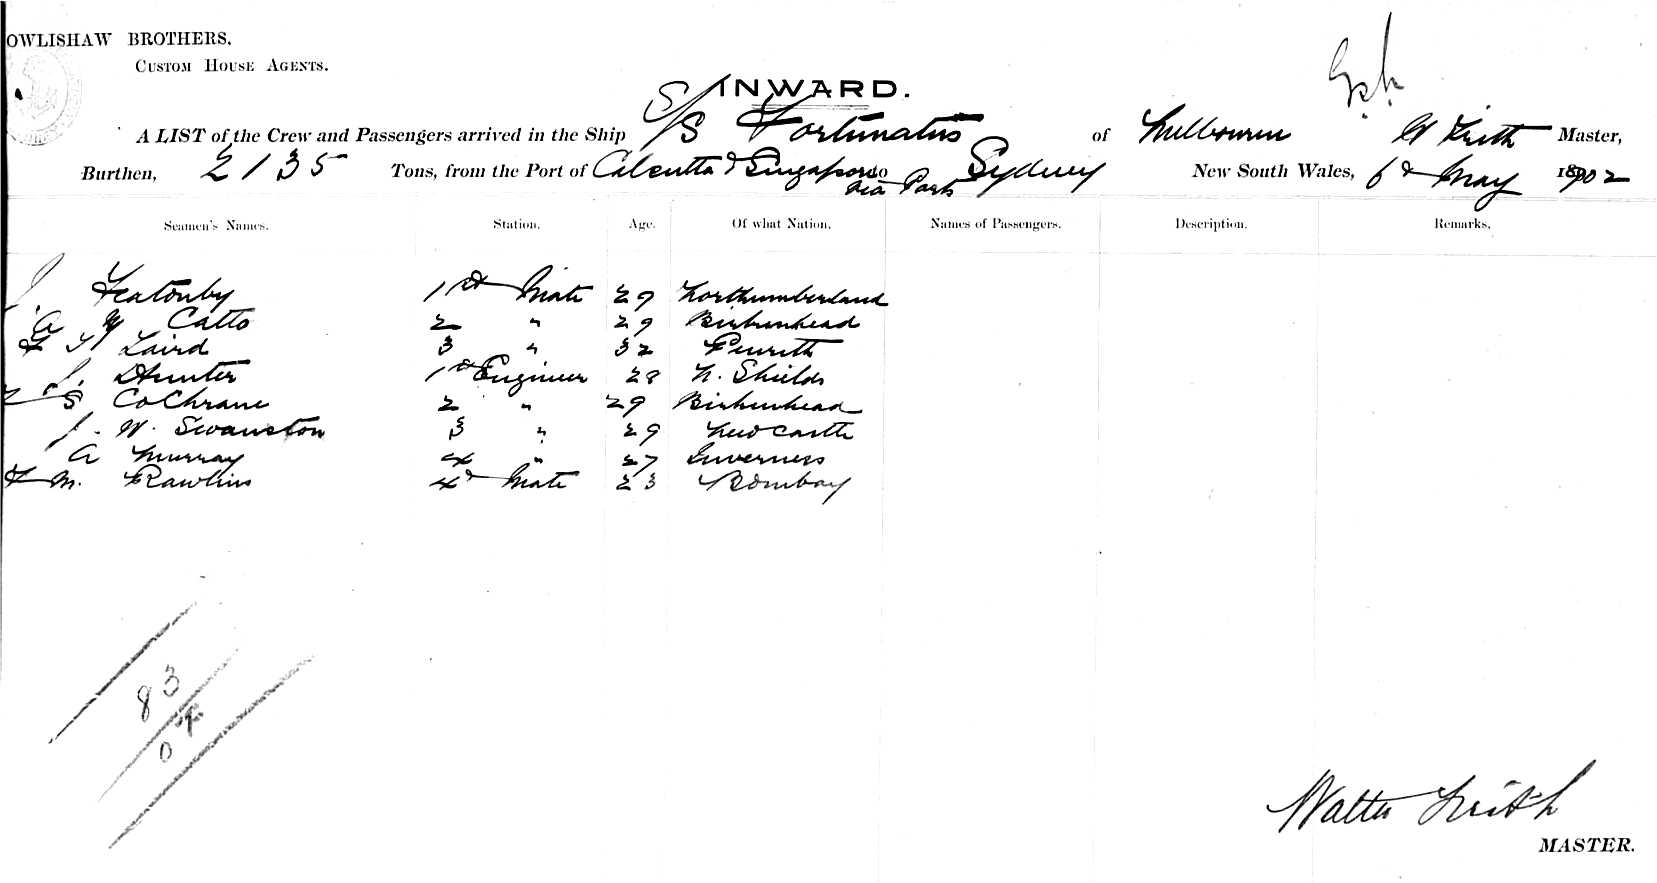 OWLISHAW BROTHERS.
CUSTOM HOUSE AGENTS.
INWARD.
A LIST of the Crew and Passengers arrived in the Ship S/S Fortunatus of Melbourne W Keith Master,
Burthen, 2135 Tons, from the Port of Calcutta & Singapore to Sydney New South Wales, 6th May 1902
via Ports
Seamen's Names. Station. Age. Of what Nation. Names of Passengers. Description. Remarks.
J. Featonby 1st Mate 29 Northumberland
A W Catto 2 " 29 Birkenhead
Laird 3 " 32 Penrith
J. Hunter 1st Engineer 28 N. Shields
S Cochrane 2 " 29 Birkenhead
J. W. Swanston 3 " 29 Newcastle
A Murray 4 " 27 Inverness
F M. Rawlins 4th Mate 23 Bombay
83
0
Walter Keith
MASTER.